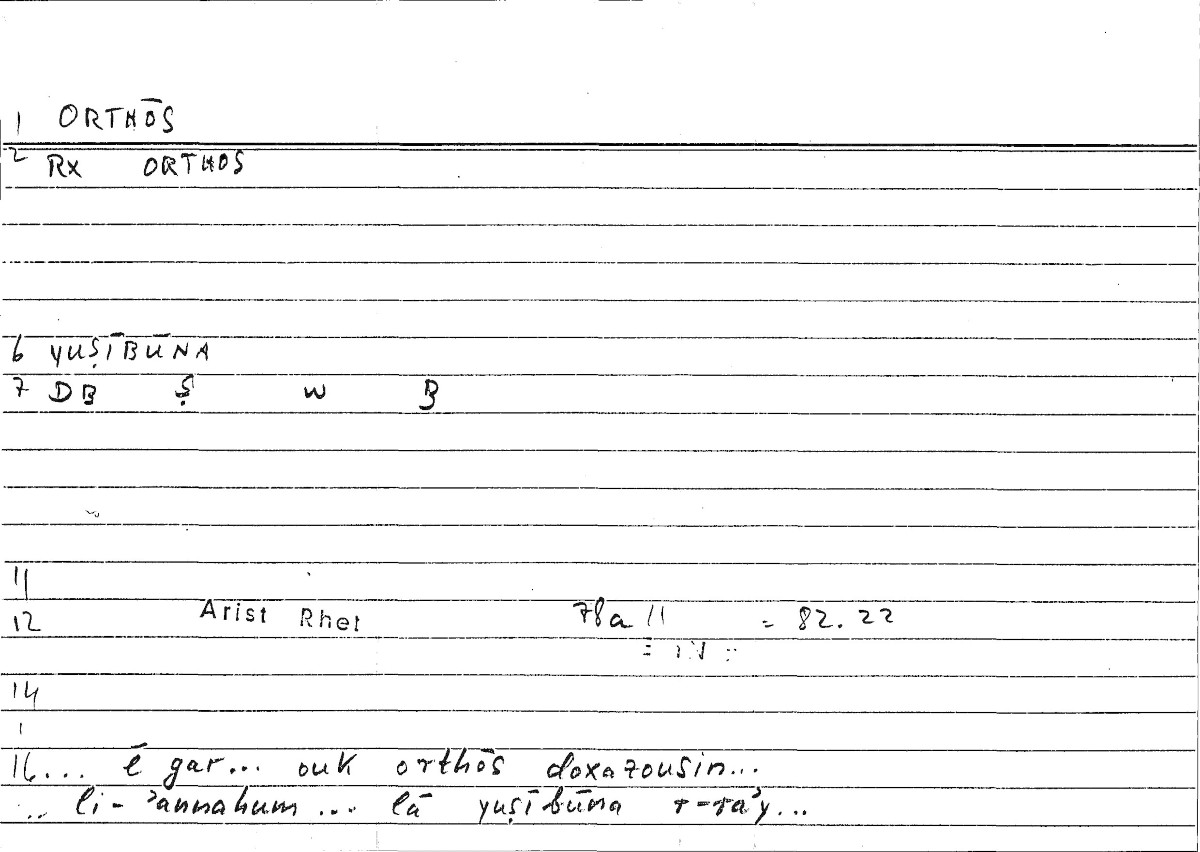 1 ORTHŌS
2 Rx ORTHOS
6 YUṢĪBŪNA
7 DB Ṣ W B
11
12 Arist Rhet 78a 11 = 82.22
14
1
16... ē gar... ouk orthōs doxazousin...
.. li-ʾannahum ... lā yuṣībūna r-raʾy...